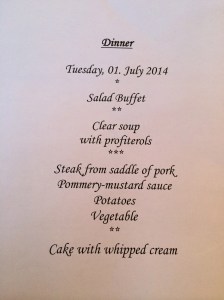 Dinner
Tuesday, 01. July 2014
*
Salad Buffet
**
Clear soup
with profiterols
***
Steak from saddle of pork
Pommery-mustard sauce
Potatoes
Vegetable
**
Cake with whipped cream